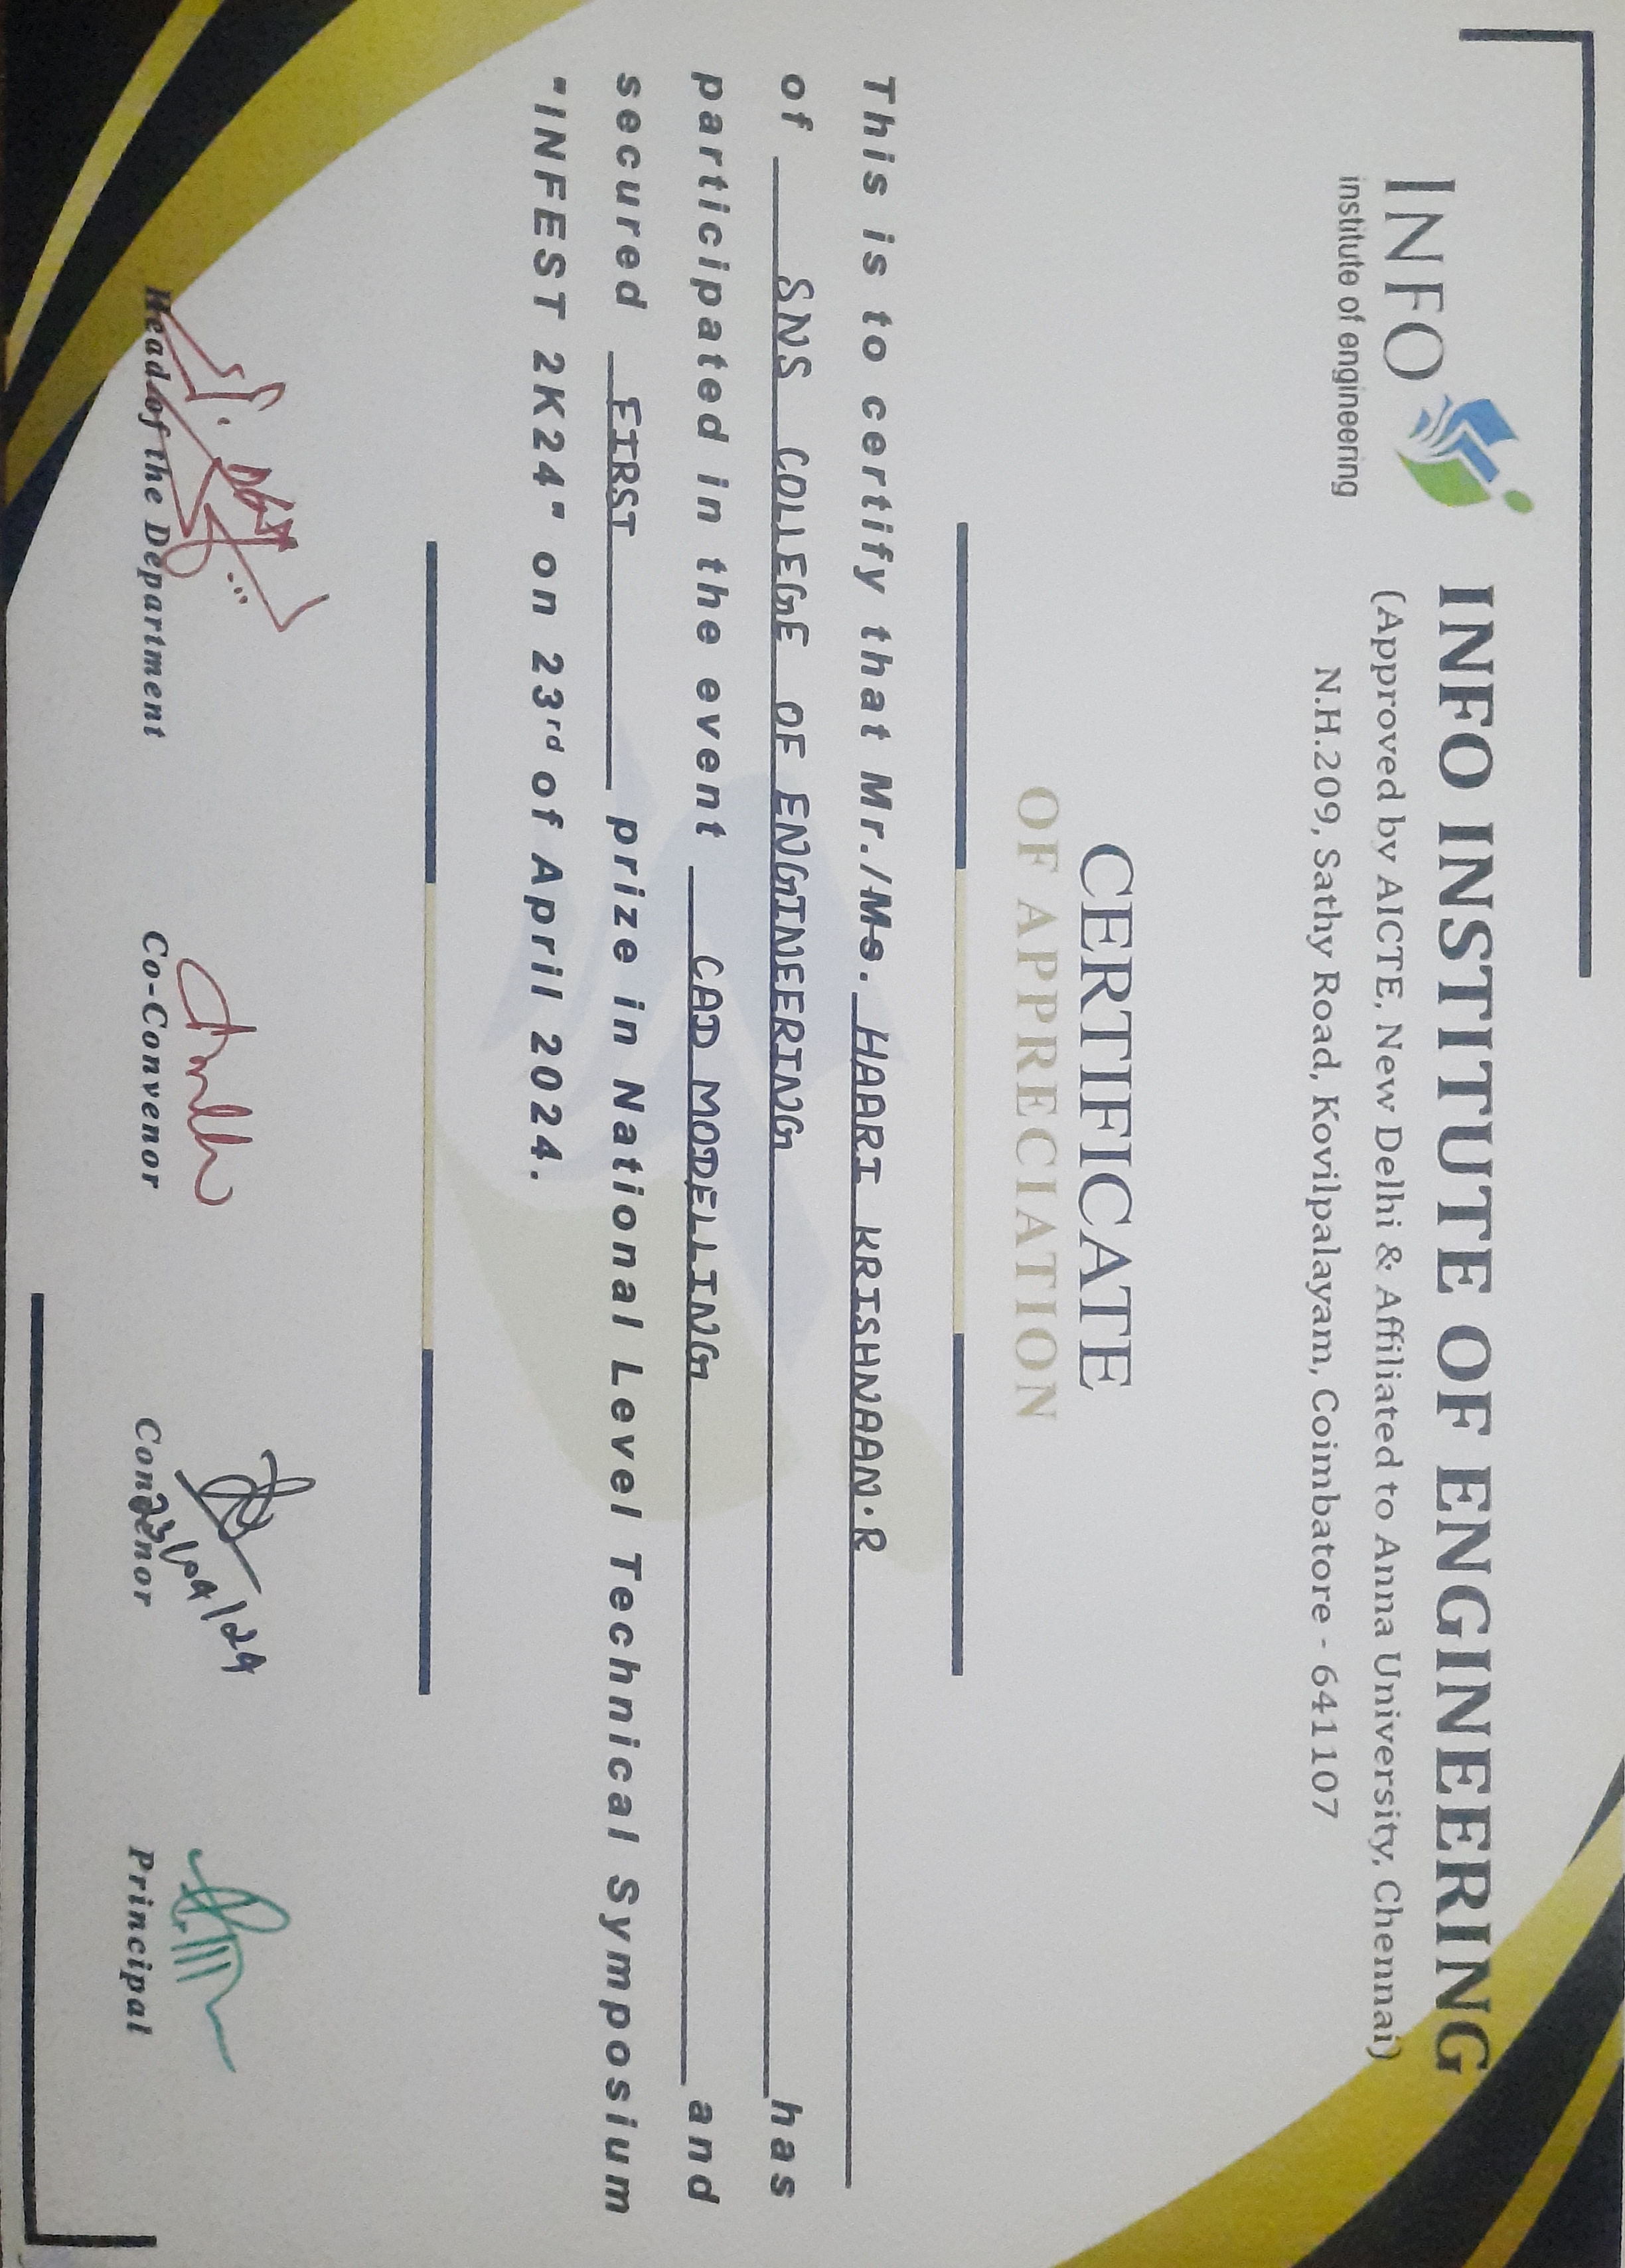 INFO
institute of engineering
INFO INSTITUTE OF ENGINEERING
(Approved by AICTE, New Delhi & Affiliated to Anna University, Chennai)
N.H.209, Sathy Road, Kovilpalayam, Coimbatore - 641107
CERTIFICATE
OF APPRECIATION
This is to certify that Mr./Ms. HAARI KRISHNAAN.R
of SNS COLLEGE OF ENGINEERING has
participated in the event CAD MODELLING and
secured FIRST prize in National Level Technical Symposium
"INFEST 2K24" on 23rd of April 2024.
23/04/24
Head of the Department Co-Convenor Convenor Principal